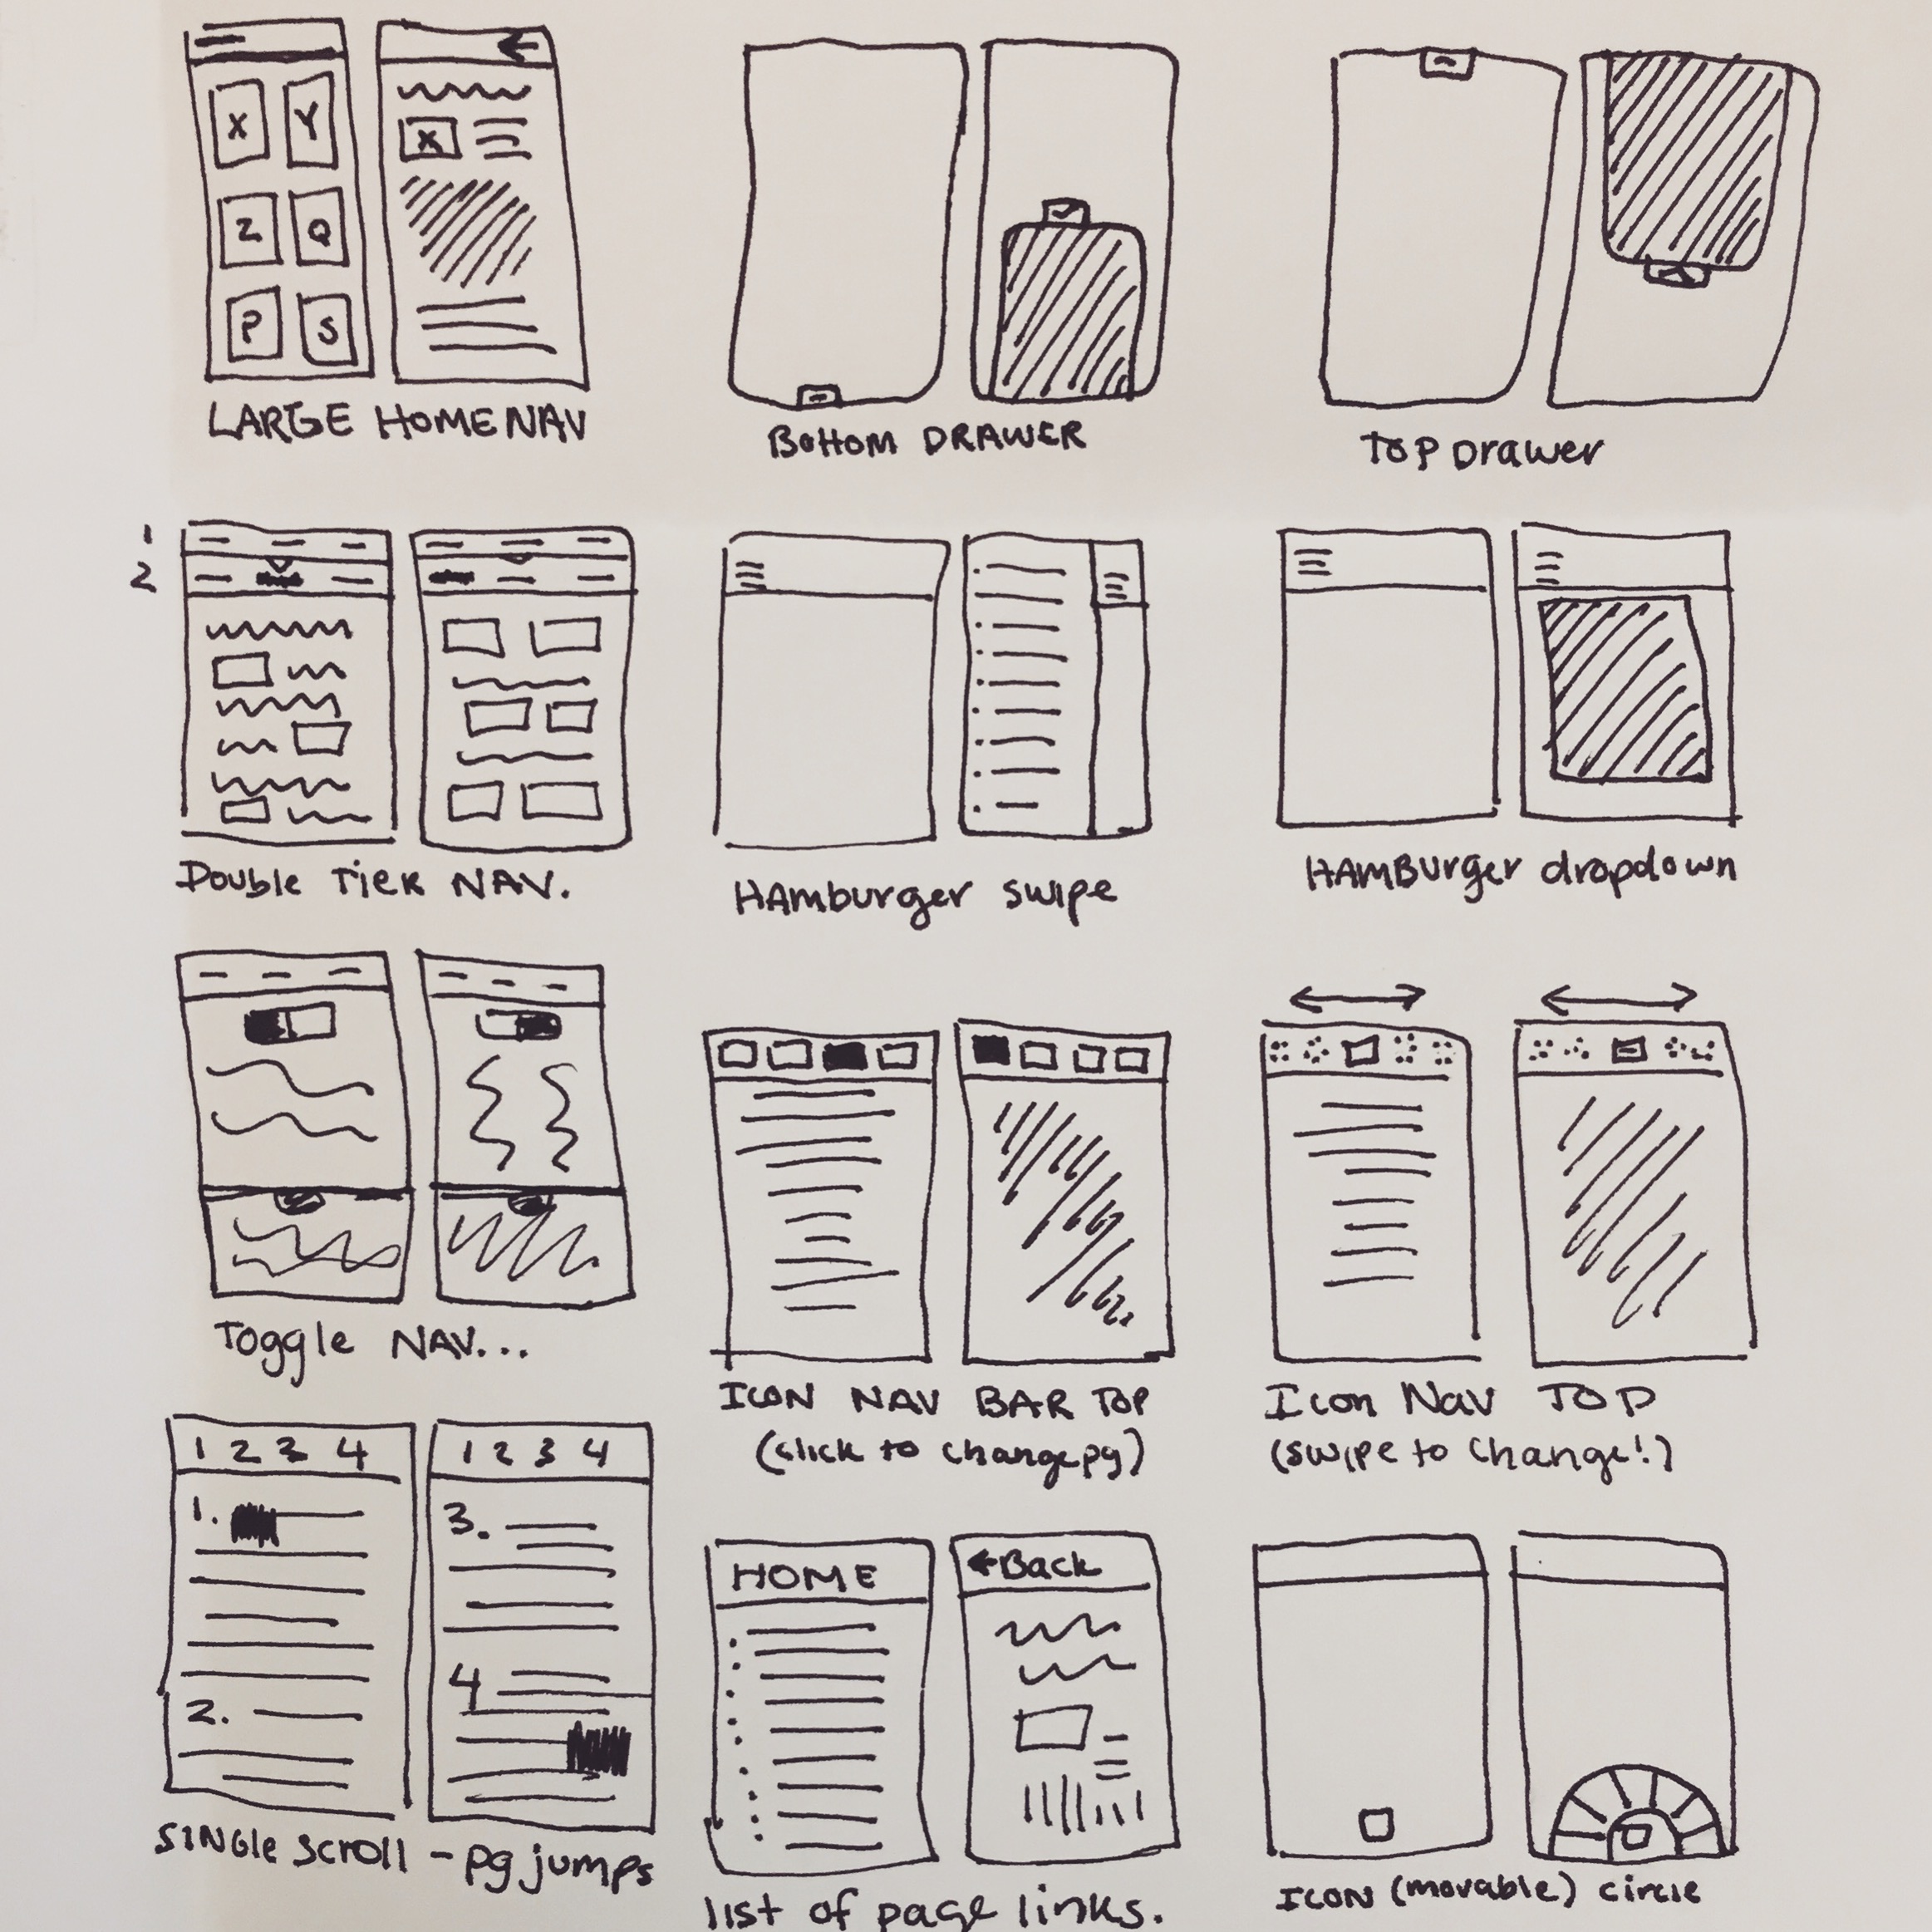 X Y
Z Q
P S
X
LARGE HOME NAV
BOttOM DRAWER
TOP Drawer
1
2
Double TieR NAV.
HAmburger swipe
HAMBurger dropdown
Toggle NAV...
ICON NAV BAR TOP
(click to change pg)
Icon Nav TOP
(swipe to change!)
1 2 3 4
1.
2.
1 2 3 4
3.
4
SINGle scroll - pg jumps
HOME
←Back
list of page links.
ICON (movable) circle